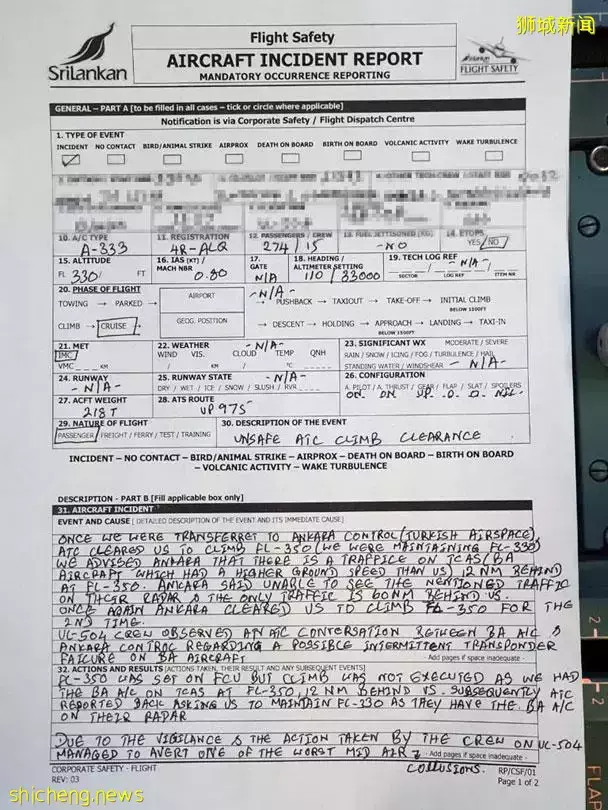 狮城新闻
SriLankan
Flight Safety
AIRCRAFT INCIDENT REPORT
MANDATORY OCCURRENCE REPORTING
SriLankan
FLIGHT SAFETY
GENERAL – PART A [to be filled in all cases – tick or circle where applicable]
Notification is via Corporate Safety / Flight Dispatch Centre
1. TYPE OF EVENT
INCIDENT NO CONTACT BIRD/ANIMAL STRIKE AIRPROX DEATH ON BOARD BIRTH ON BOARD VOLCANIC ACTIVITY WAKE TURBULENCE
10. A/C TYPE 11. REGISTRATION 12. PASSENGERS / CREW 13. FUEL JETTISONED (KG) 14. ETOPS
A-333 4R-ALQ 274 / 15 -NO YES/NO
15. ALTITUDE 16. IAS (KT) / MACH NBR 17. GATE 18. HEADING / ALTIMETER SETTING 19. TECH LOG REF
FL 330/ FT 0.80 N/A 110 / 33000 -N/A-
SECTOR LOG REF ITEM NR
20. PHASE OF FLIGHT AIRPORT -N/A-
TOWING → PARKED → → PUSHBACK → TAXIOUT → TAKE-OFF → INITIAL CLIMB
BELOW 1500FT
GEOG. POSITION
CLIMB → CRUISE → → DESCENT → HOLDING → APPROACH → LANDING → TAXI-IN
BELOW 1500FT
21. MET 22. WEATHER -N/A- 23. SIGNIFICANT WX MODERATE / SEVERE
IMC WIND VIS. CLOUD TEMP QNH RAIN / SNOW / ICING / FOG / TURBULENCE / HAIL
VMC KM / KM / °C STANDING WATER / WINDSHEAR -N/A-
24. RUNWAY 25. RUNWAY STATE -N/A- 26. CONFIGURATION
-N/A- DRY / WET / ICE / SNOW / SLUSH / RVR A. PILOT / A. THRUST / GEAR / FLAP / SLAT / SPOILERS
ON ON UP 0 0 NIL
27. ACFT WEIGHT 28. ATS ROUTE
218 T UP 975
29. NATURE OF FLIGHT 30. DESCRIPTION OF THE EVENT
PASSENGER / FREIGHT / FERRY / TEST / TRAINING UNSAFE ATC CLIMB CLEARANCE
INCIDENT – NO CONTACT – BIRD/ANIMAL STRIKE – AIRPROX – DEATH ON BOARD – BIRTH ON BOARD
– VOLCANIC ACTIVITY – WAKE TURBULENCE
DESCRIPTION - PART B [Fill applicable box only]
31. AIRCRAFT INCIDENT
EVENT AND CAUSE [DETAILED DESCRIPTION OF THE EVENT AND ITS IMMEDIATE CAUSE]
ONCE WE WERE TRANSFERRET TO ANKARA CONTROL (TURKISH AIRSPACE),
ATC CLEARED US TO CLIMB FL-350 (WE WERE MAINTAINING FL-330)
WE ADVISED ANKARA THAT THERE IS A TRAFFIC ON TCAS/BA
AIRCRAFT WHICH HAD A HIGHER GROUND SPEED THAN US) 12 NM BEHIND
AT FL-350. ANKARA SAID UNABLE TO SEE THE MENTIONED TRAFFIC
ON THEIR RADAR & THE ONLY TRAFFIC IS 60NM BEHIND US.
ONCE AGAIN ANKARA CLEARED US TO CLIMB FL-350 FOR THE
2ND TIME.
UL-504 CREW OBSERVED AN ATC CONVERSATION BETWEEN BA A/C &
ANKARA CONTROL REGARDING A POSSIBLE INTERMITTENT TRANSPONDER
FAILURE ON BA AIRCRAFT
- Add pages if space inadequate -
32. ACTIONS AND RESULTS [ACTIONS TAKEN, THEIR RESULT AND ANY SUBSEQUENT EVENTS]
FL-350 WAS SET ON FCU BUT CLIMB WAS NOT EXECUTED AS WE HAD
THE BA A/C ON TCAS AT FL-350, 12 NM BEHIND US. SUBSEQUENTLY ATC
REPORTED BACK ASKING US TO MAINTAIN FL-330 AS THEY HAVE THE BA A/C
ON THEIR RADAR
DUE TO THE VIGILANCE & THE ACTION TAKEN BY THE CREW ON UL-504
MANAGED TO AVERT ONE OF THE WORST MID AIR
- Add pages if space inadequate -
COLLUSIONS.
CORPORATE SAFETY - FLIGHT RP/CSF/01
REV: 03 Page 1 of 2
shicheng.news
FLA